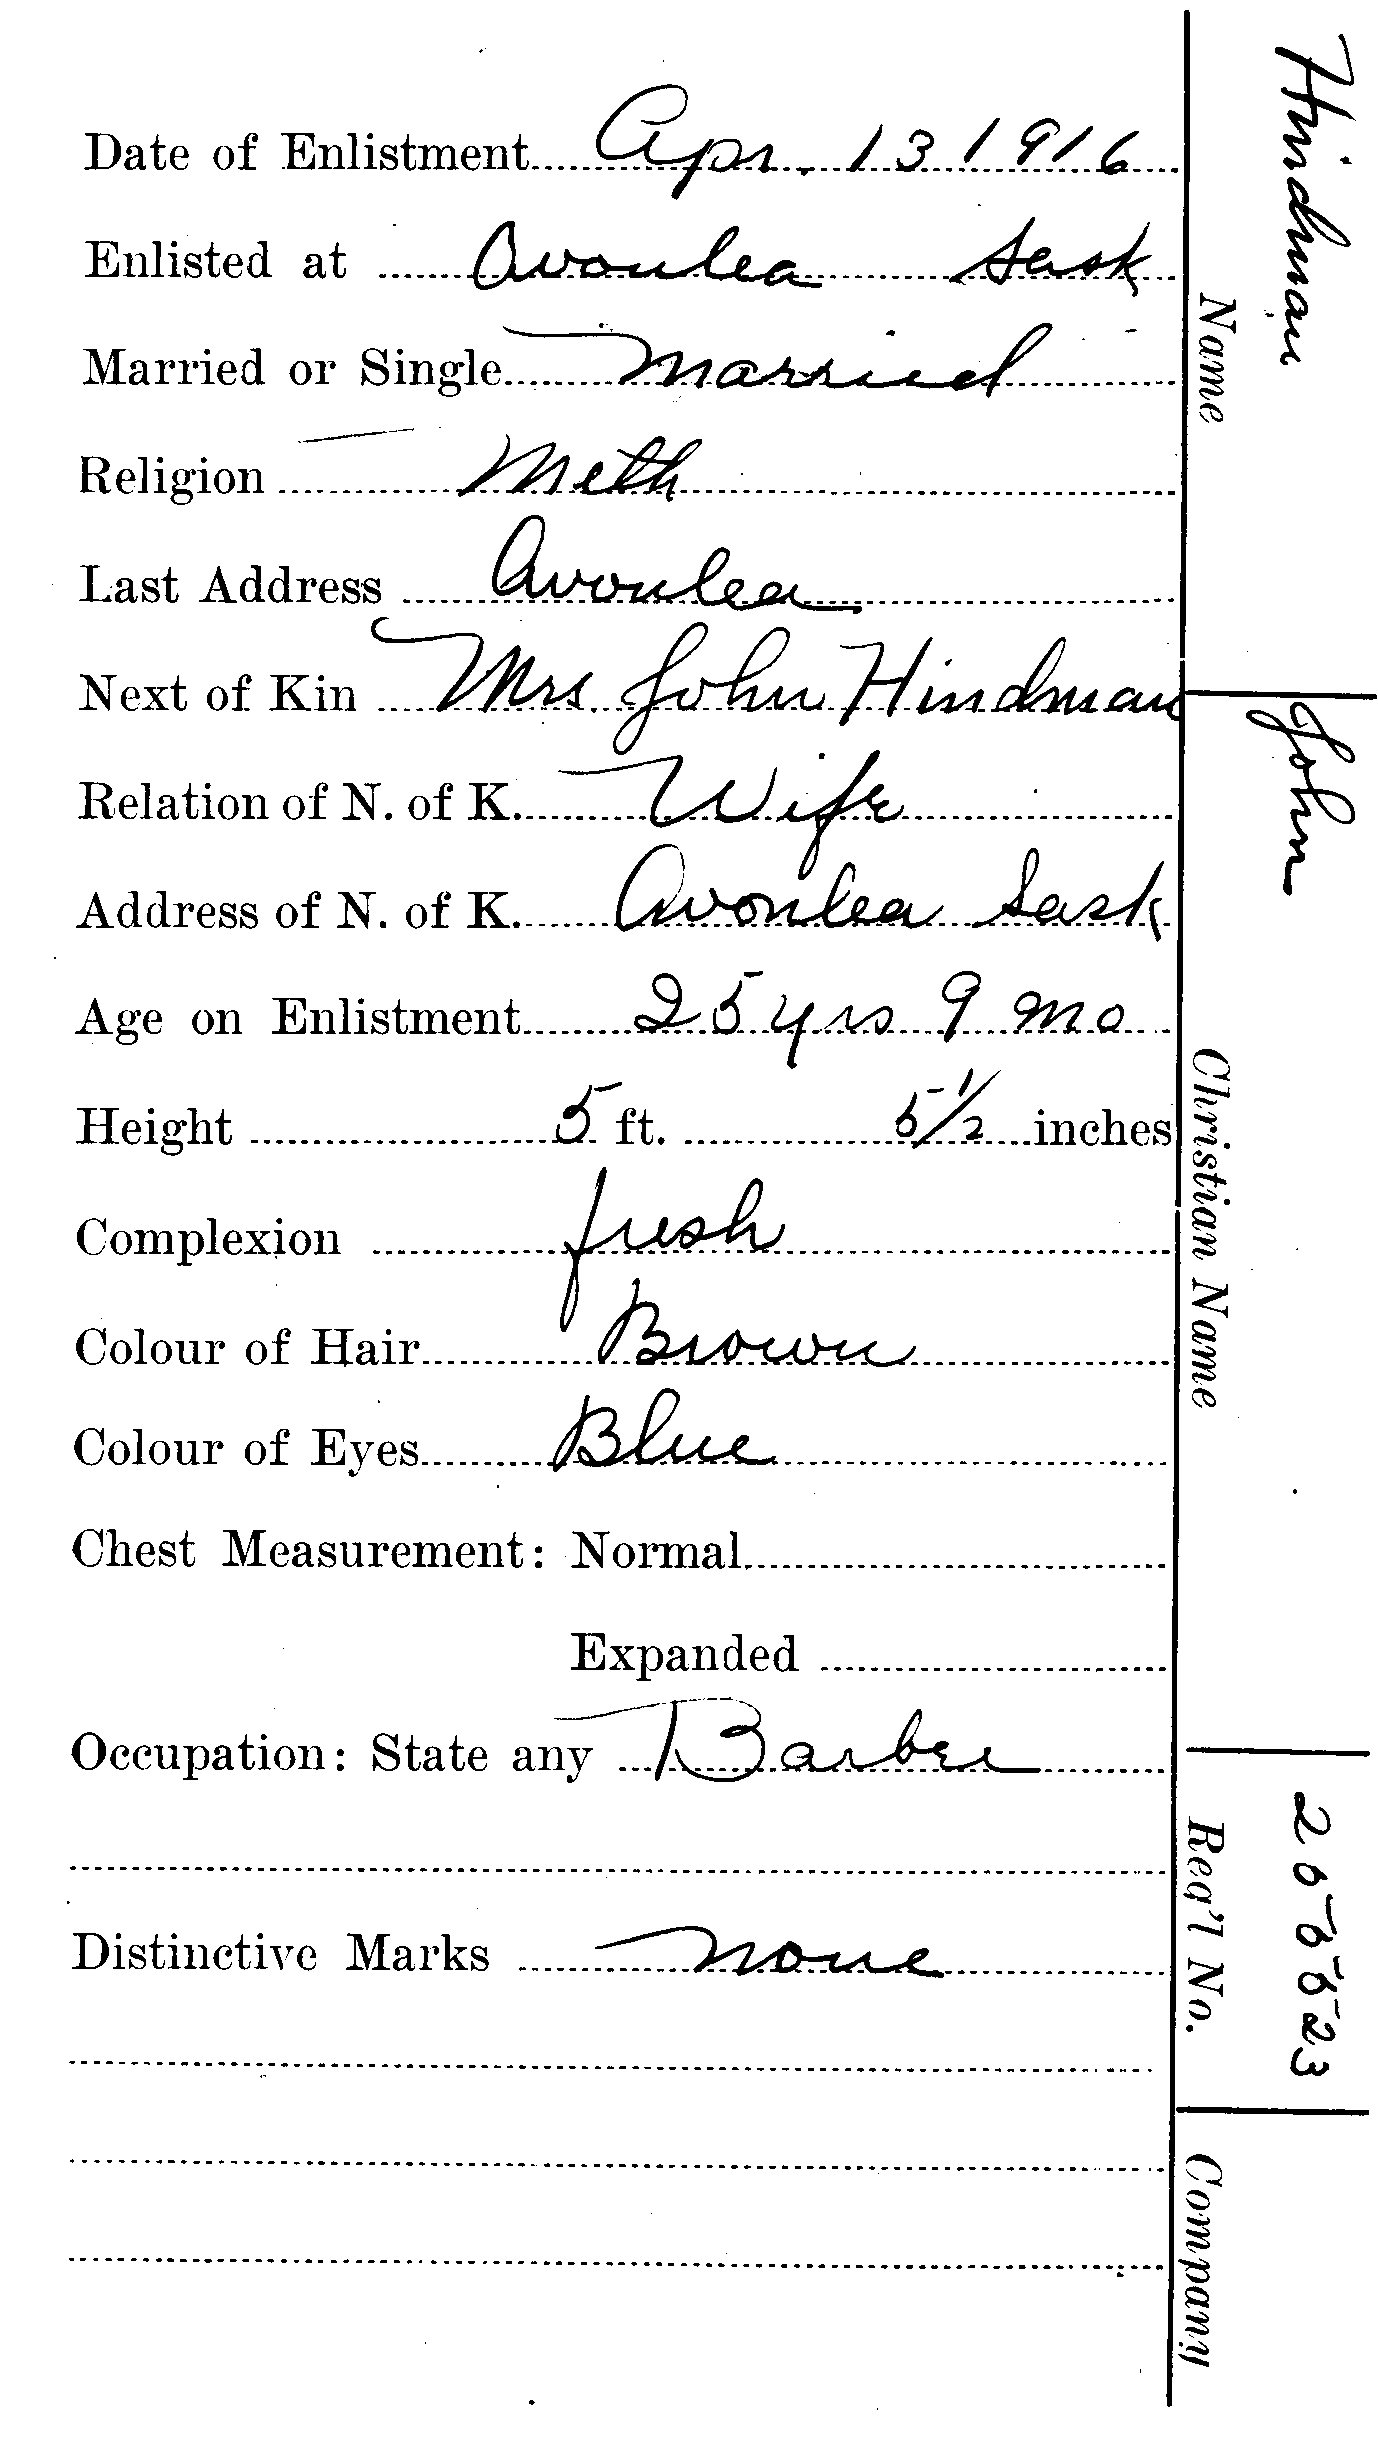 Date of Enlistment Apr. 13 1916
Enlisted at Avonlea Sask
Married or Single Married
Religion Meth
Last Address Avonlea
Next of Kin Mrs John Hindman
Relation of N. of K. Wife
Address of N. of K. Avonlea Sask
Age on Enlistment 25 yrs 9 mo
Height 5 ft. 5 1/2 inches
Complexion fresh
Colour of Hair Brown
Colour of Eyes Blue
Chest Measurement: Normal
Expanded
Occupation: State any Barber
Distinctive Marks none
Hindman
Name
John
Christian Name
255523
Reg'l No.
Company